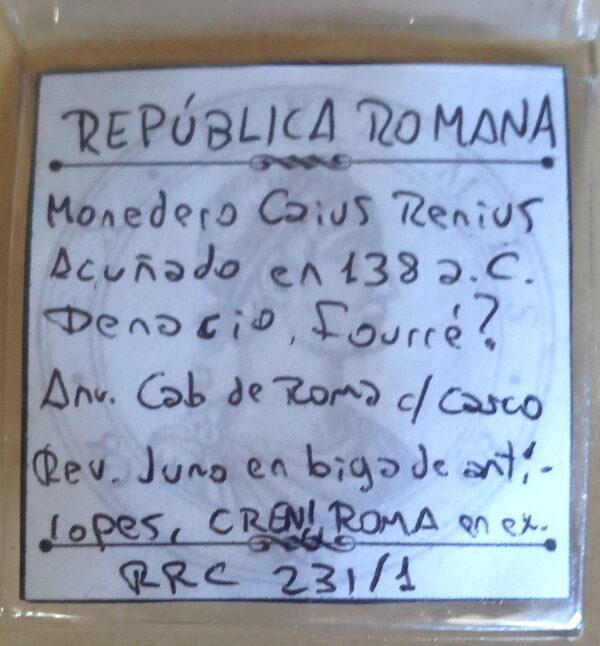 REPÚBLICA ROMANA
Monedero Caius Renius
Acuñado en 138 a.C.
Denario, Fourré?
Anv. Cab de Roma c/ casco
Rev. Juno en biga de antí-
lopes, CRENI, ROMA en ex.
RRC 231/1